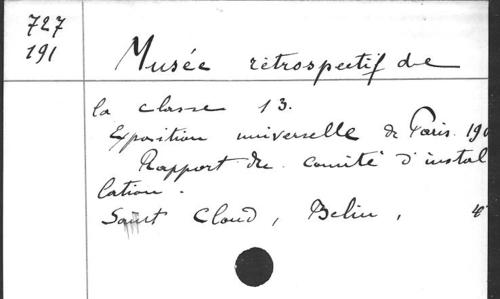 727
191
Musée rétrospectif de
la classe 13.
Exposition universelle de Paris. 190
Rapport du comité d'instal
lation.
Saint Cloud, Belin, 4°